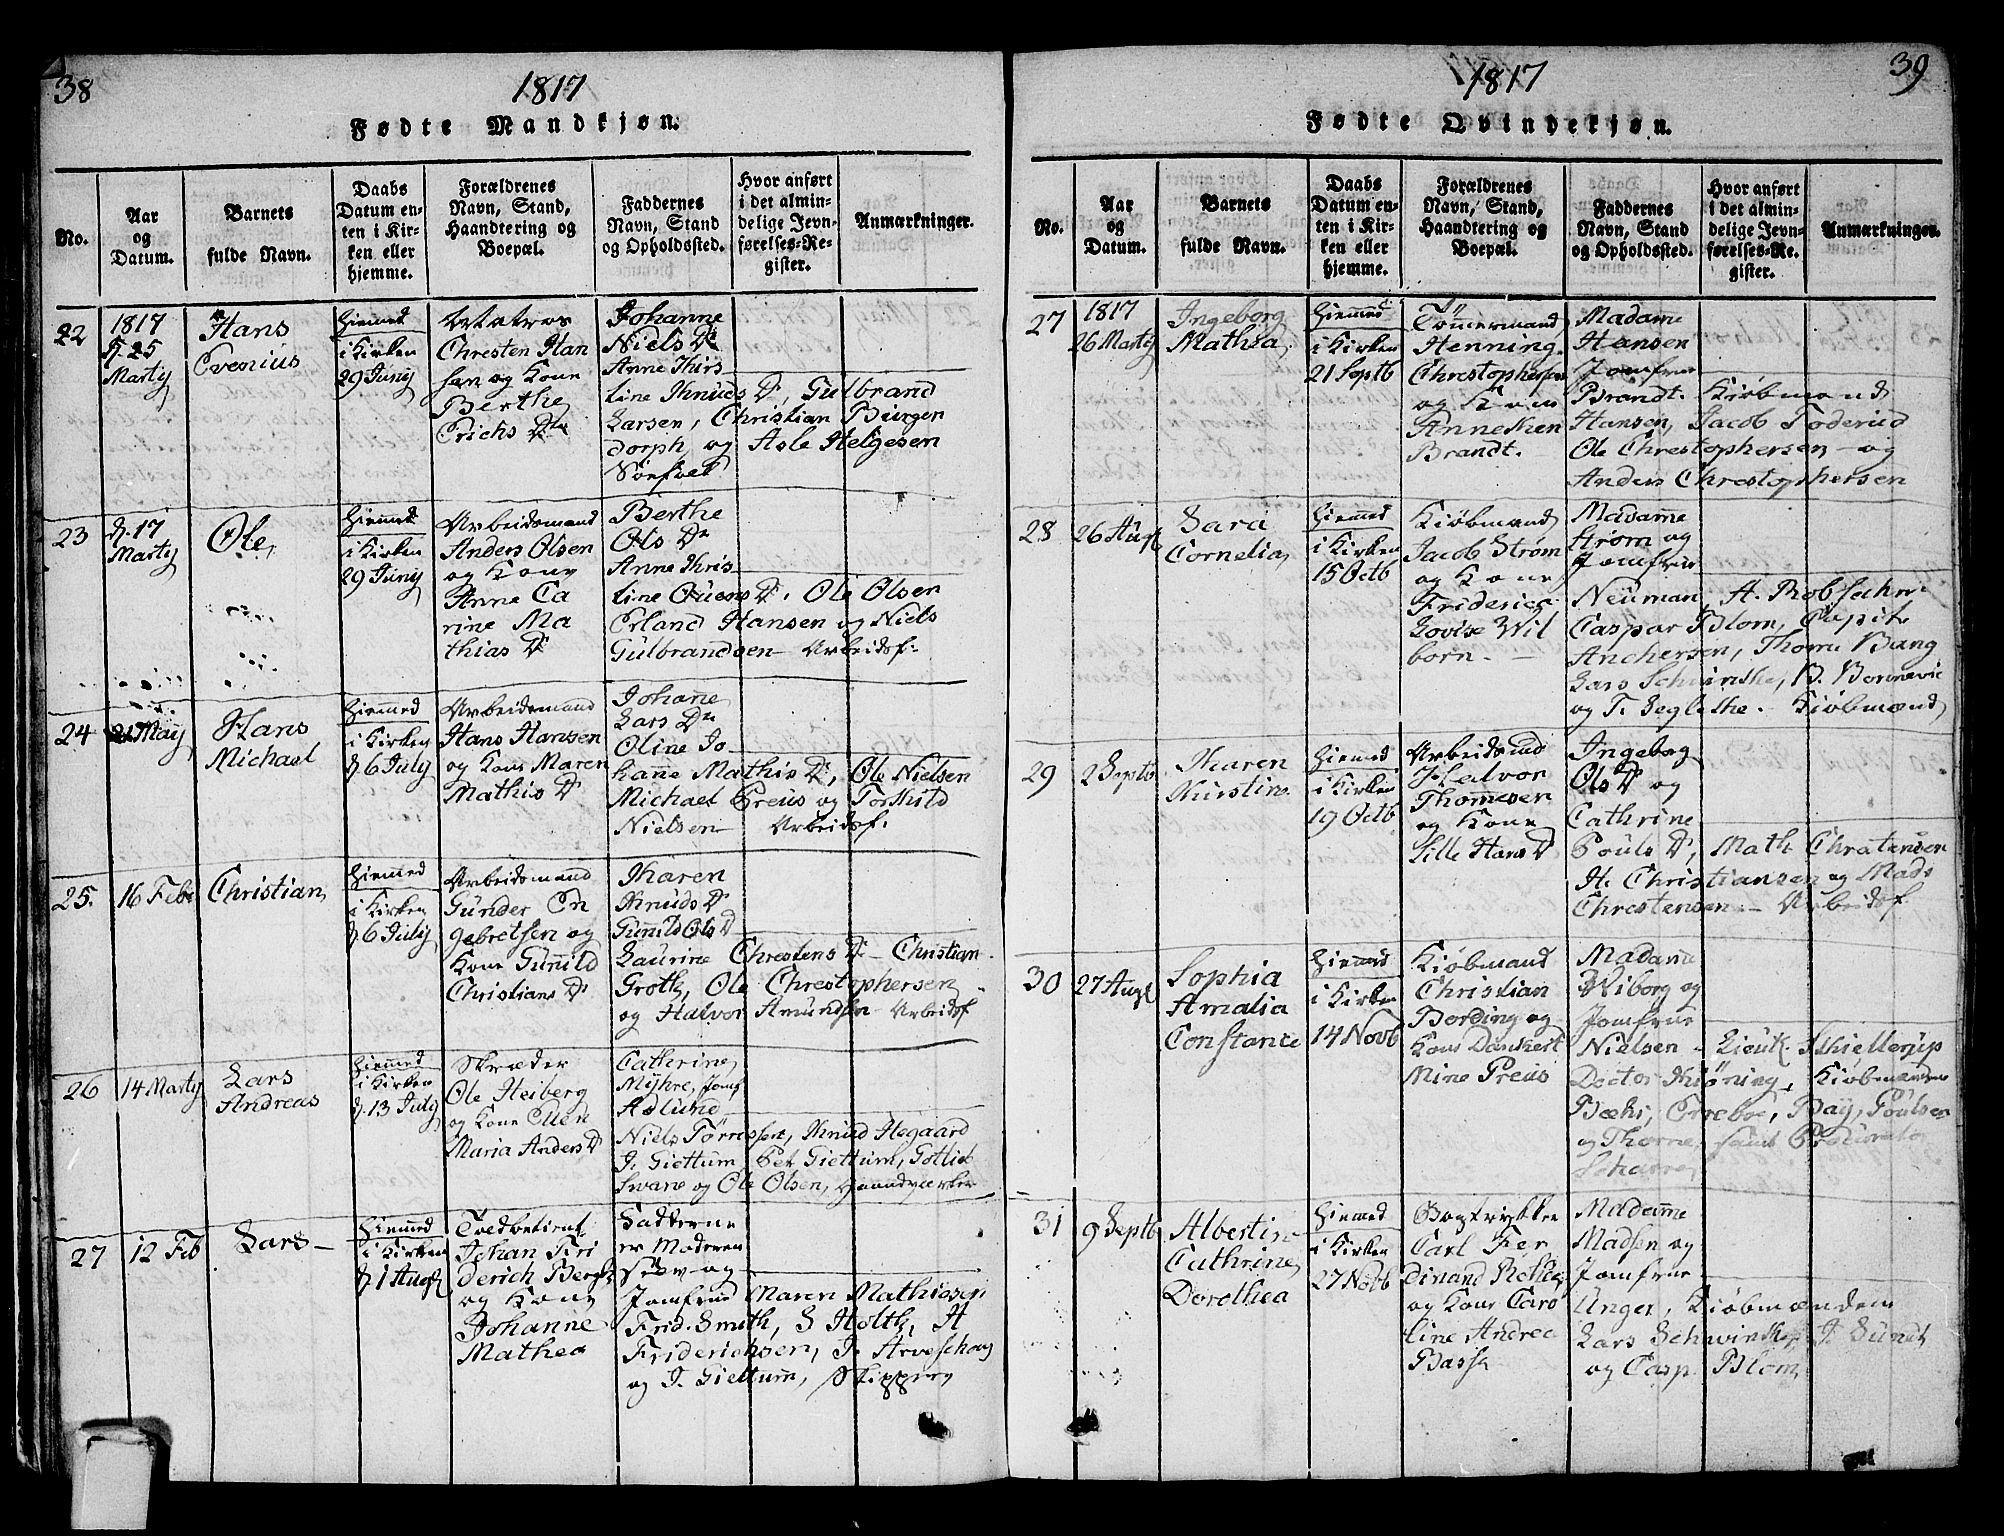 38
1817
Fødte Mandkjøn.
No.
Aar
og
Datum.
Barnets
fulde Navn.
Daabs
Datum en-
ten i Kir-
ken eller
hjemme.
Forældrenes
Navn, Stand,
Haandtering og
Boepæl.
Faddernes
Navn, Stand
og Opholdssted.
Hvor anført
i det almin-
delige Jevn-
førelses-Re-
gister.
Anmærkninger.
22
1817
d. 25
Martÿ
Hans
Evenius
Hiemed
i Kirken
29 Junÿ
Chresten Han
sen og Kone
Berthe
Erichs Dr
Johanne
Niels Dr
Anne Kirs
tine Knuds Dr, Gulbrand
Larsen, Christian Burgen
dorph, og Asle Helgesen
23
d. 17
Martÿ
Ole,
Hiemed
i Kirken
29 Junÿ
Arbeidsmand
Anders Olsen
og Kone
Anne Ca
rine Ma
thias Dr
Berthe
Ols Dr
Anne Kris
tine Ouens Dr. Ole Olsen
Erland Hansen og Niels
Gulbrandsen – Arbeidsf:
24
21 Maÿ
Hans
Michael
Hiemed
i Kirken
d 6 Julÿ
Arbeidsmand
Hans Hansen
og Kone Maren
Mathis Dr
Johane
Lars Dr
Oline Jo-
hanne Mathis Dr, Ole Nielsen
Michael Preus og Torkild
Nielsen – Arbeidsf.
25.
16 Febr
Christian,
Hiemed
i Kirken
d 6 Julÿ
Arbeidsmand
Gunder En
gebretsen og
Kone Gunild
Christians Dr
Karen
Knuds Dr
Gunild Ols Dr
Laurine Chrestens Dr – Christian
Groth, Ole Chrestophersen
og Halvor Amundsen – Arbeidsf
26
14 Martÿ
Lars
Andreas
Hiemed
i Kirken
d. 13 Julÿ
Skræder
Ole Heiberg
og Kone Ellen
Maria Anders Dr
Catherine
Myhre, Jomf
Aslund
Niels Tørrissen, Knud Hegaard
J. Giettum Pet Giettum, Gotlieb
Svane og Ole Olsen, Haandværker
27
12 Feb
Lars –
Hiemed
i Kirken
d 1 Augs
Toldbetient
Johan Fri
derich Bergh
og Kone
Johanne
Mathea
Fadderne
er Moderen
selv og
Jomfrue Maren Mathiesen
Frid. Smith, S Holth, H
Friderichsen, J. Arveschoug
og J. Giettum, Skippere
39
1817
Fødte Qvindekjøn.
No.
Aar
og
Datum.
Barnets
fulde Navn.
Daabs
Datum en-
ten i Kir-
ken eller
hjemme.
Forældrenes
Navn, Stand,
Haandtering og
Boepæl.
Faddernes
Navn, Stand
og Opholdssted.
Hvor anført
i det almin-
delige Jevn-
førelses-Re-
gister.
Anmærkninger.
27
1817
26 Martÿ
Ingeborg
Mathea
Hiemed
i Kirken
21 Septb
Tømmermand
Henning
Chrestophersen
og Kone
Anneken
Brandt.
Madame
Hansen
Jomfrue
Brandt. Kiøbmand
Hansen, Jacob Toderud
Ole Chrestophersen – og
Anders Chrestophersen
28
26 Augs
Sara
Cornelia,
Hiemed
i Kirken
15 Octb
Kiøbmand
Jacob Strøm
og Kone
Friderica
Lovise Wil
born. –
Madame
Strøm og
Jomfrue
Neuman, H. Robsahm
Caspar Blom, Capit.
Anchersen, Thom. Bang
Lars Schvinske, B. Bonnevie
og T. Segelcke. Kiøbmænd
29
2 Septb
Karen
Kirstine
Hiemed
i Kirken
19 Octb
Arbeidsmd
Halvor
Thomesen
og Kone
Sille Hans Dr
Ingeborg
Ols Dr og
Cathrine
Pouls Dr, Math Chrestensen
H. Christiansen og Mads
Chrestensen – Arbeidsf
30
27 Augs
Sophia
Amalia
Constance
Hiemed
i Kirken
14 Novb
Kiøbmand
Christian
Bording og
Kone Dankert
Mine Preus
Madame
Wiborg og
Jomfrue
Nielsen – Lieut. Skiellerup
Doctor Kiøning, Kiøbmændene
Becks, Orreboe, Baÿ, Poulsen
og Thorne, samt Procurator
31
9 Septb
Albertine
Cathrine
Dorothea
Hiemed
i Kirken
27 Novb
Bogtrykker
Carl Fer
dinand Rohde
og Kone Caro
line Andrea
Basse
Madame
Madsen og
Jomfrue
Unger, Kiøbmændene
Lars Schvinske, J. Lundt
og Casp. Blom,